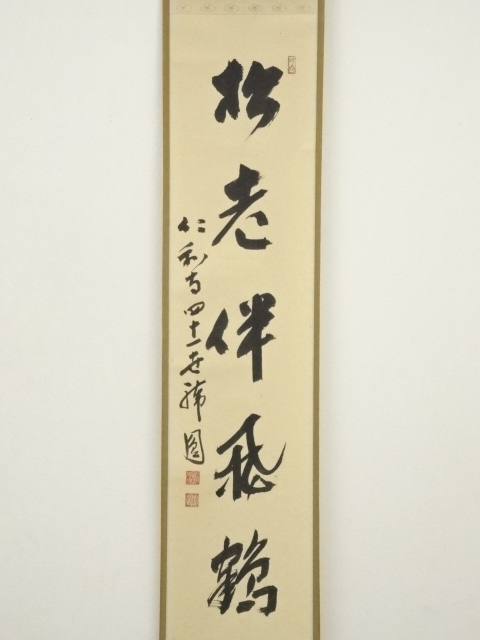 松老伴飛鶴
仁和寺四十一世諦圓